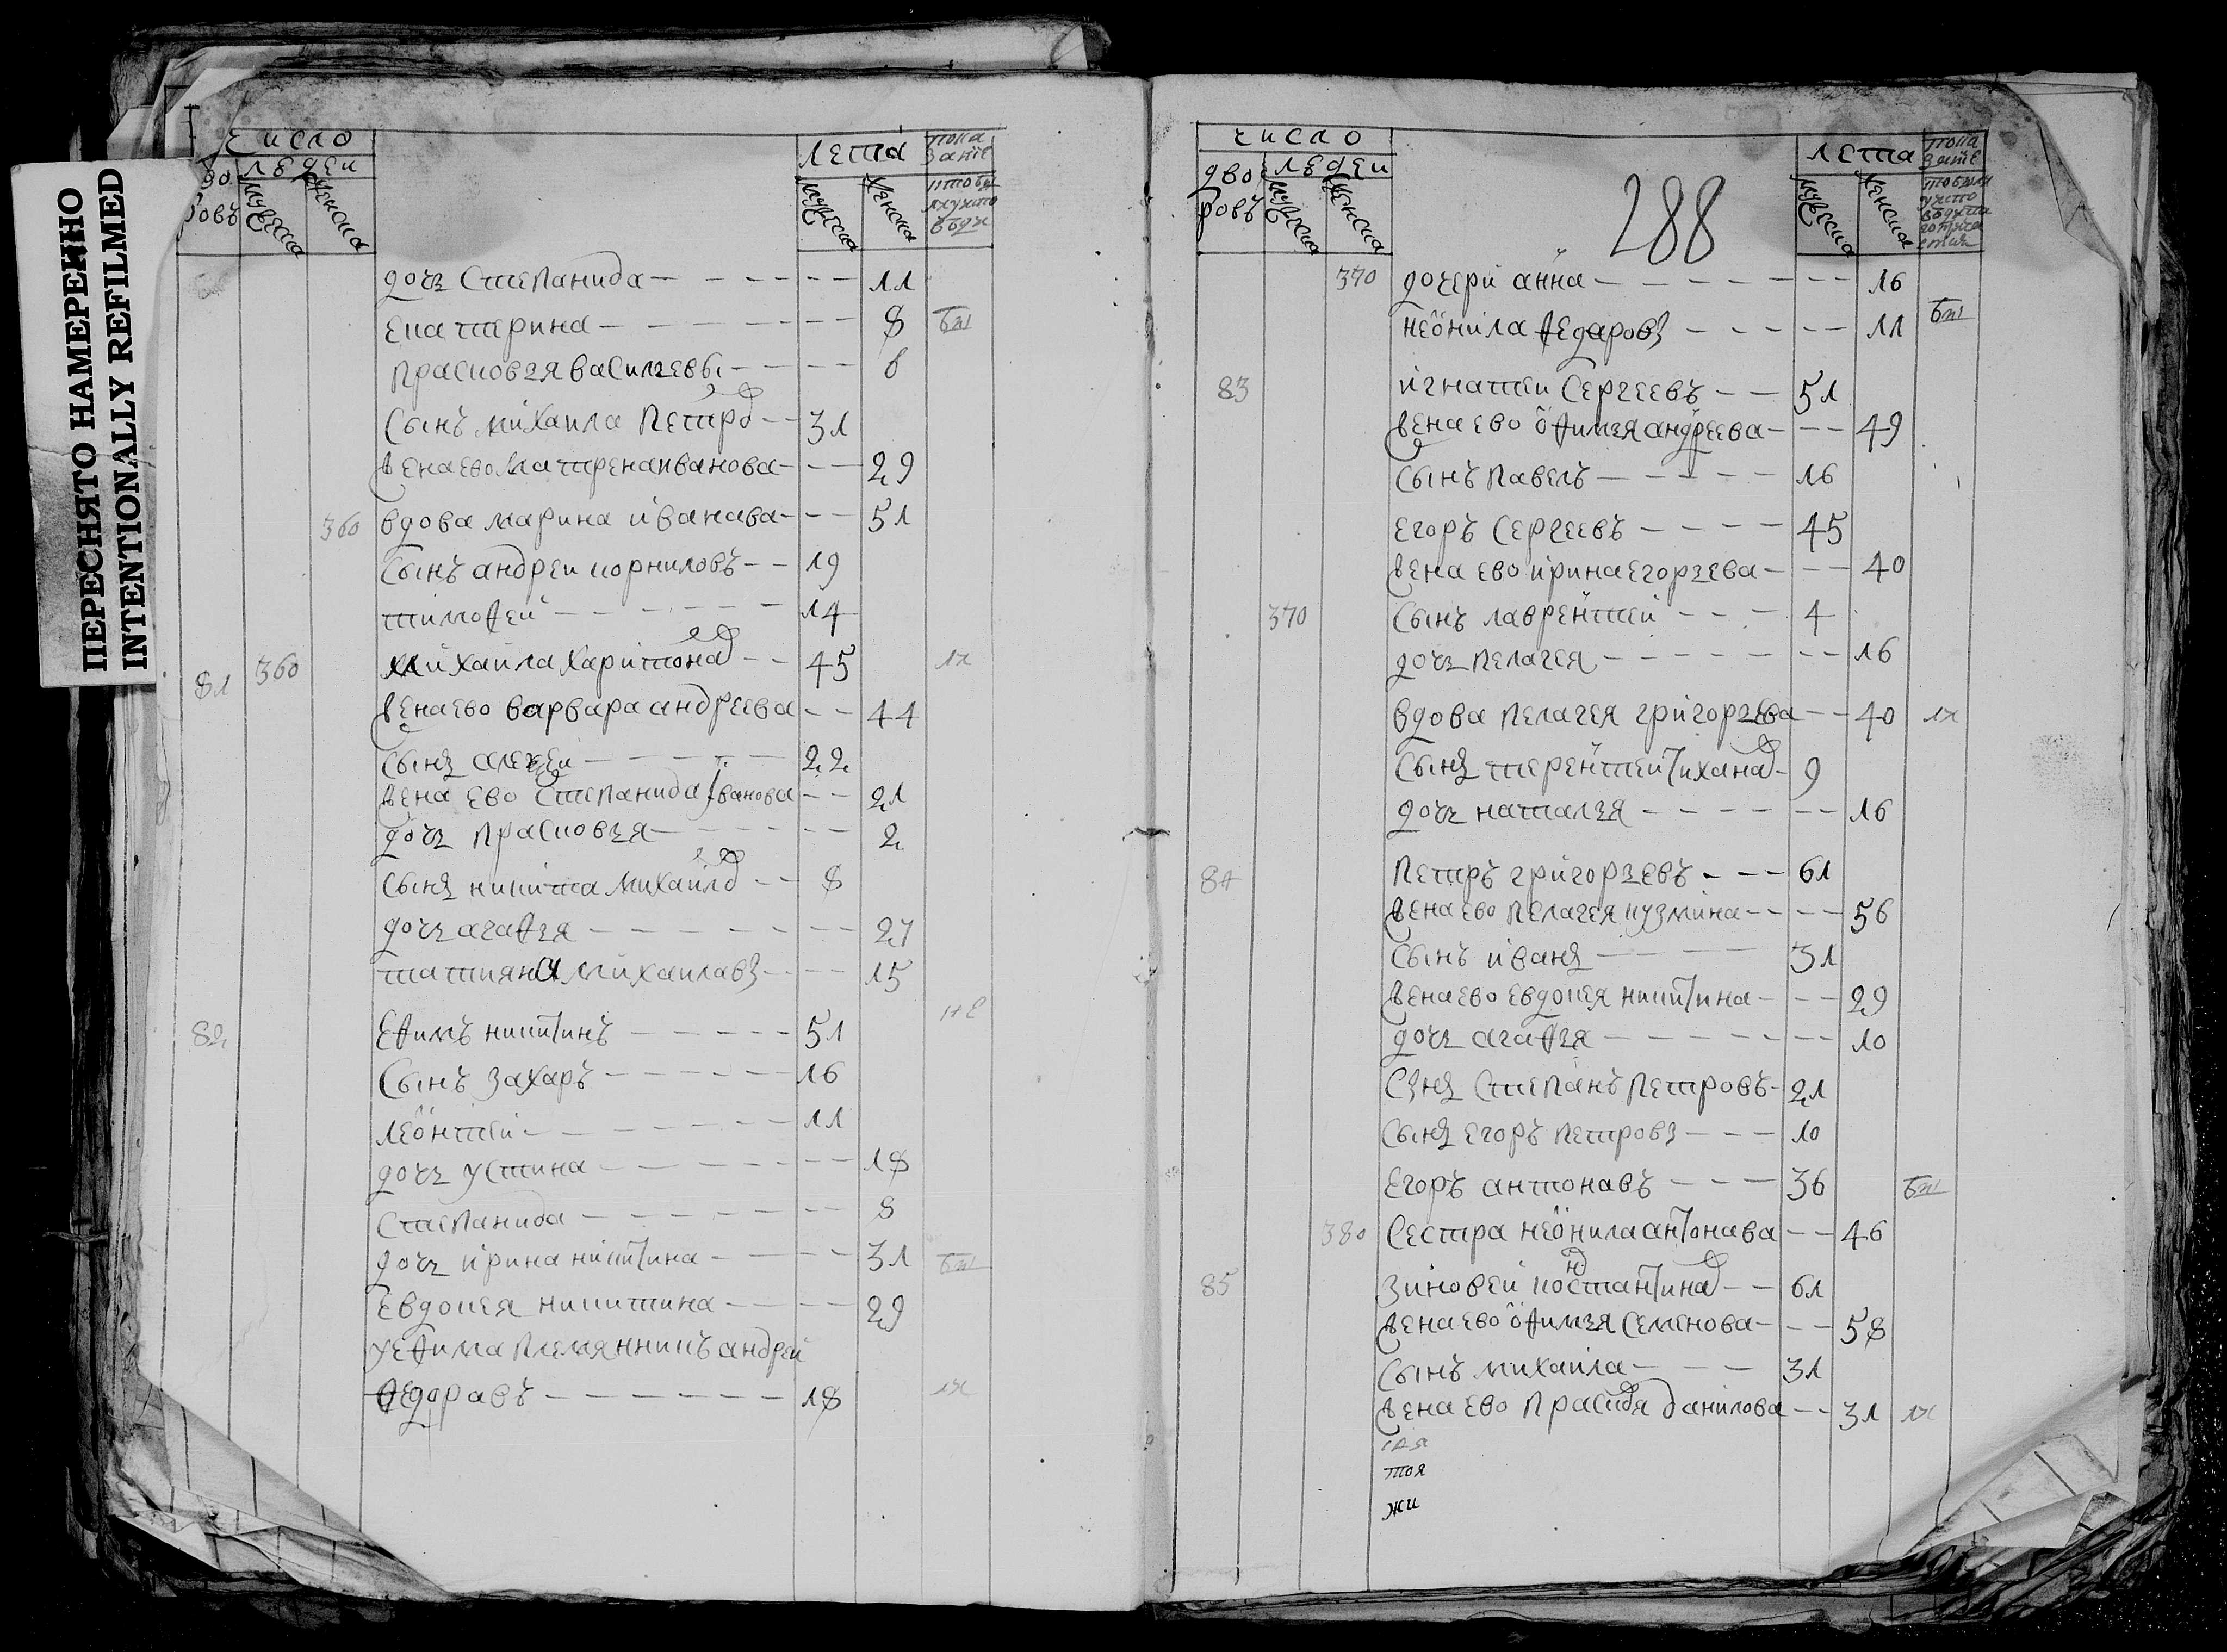 ПЕРЕСНЯТО НАМЕРЕННО
INTENTIONALLY REFILMED
число
людеи
ровъ мужеска женска
лета
мужеска женска
дочь Степанида - - - - - 11
екатерина - - - - - 8
прасковья васильевы - - - - 6
Сынъ михаила Петров - - 31
жена ево матрена иванова - - - 29
360 вдова марина иванава - - - 51
Сынъ андреи корниловъ - - 19
тимофеи - - - - - - 14
81 360 михаила харитонов - - 45
жена ево варвара андреева - - 44
сынъ алексеи - - - - - 22
жена ево Степанида Iванова - - 21
дочь прасковья - - - - - 2
сынъ никита михаилов - - 8
дочь агафья - - - - - - 27
татияна михаилавы - - - 15
82 Ефимъ никитинъ - - - - - 51
Сынъ захаръ - - - - - - 16
леонтеи - - - - - - 11
дочь устина - - - - - - 18
Степанида - - - - - - 8
дочь ирина никитина - - - - 31
Евдокея никитина - - - - 29
у ефима племянникъ андреи
Федоравъ - - - - - - 18
число
дворовъ людеи
мужеска женска
288
лета
мужеска женска
370 дочери анна - - - - - - - 16
неонила федаровы - - - - - 11
83 игнатеи Сергеевъ - - 51
жена ево офимья андреева - - - 49
Сынъ павелъ - - - - - 16
егоръ Сергеевъ - - - - 45
жена ево ирина егорьева - - - 40
370 Сынъ лаврентеи - - - 4
дочь пелагея - - - - - - - 16
вдова пелагея григорьева - - 40
Сынъ терентеи тиханов - 9
дочь наталья - - - - - - 16
84 Петръ григорьевъ - - - 61
жена ево пелагея кузмина - - - - 56
Сынъ иванъ - - - - - 31
жена ево евдокея никитина - - - 29
дочь агафья - - - - - - - 10
Сынъ Степанъ петровъ - 21
Сынъ егоръ петровъ - - - 10
Егоръ антонавъ - - - 36
380 Сестра неонила антонава - - 46
85 зиновеи костантинов - - 61
жена ево офимья Семенова - - - 58
Сынъ михаила - - - - 31
жена ево прасковя данилова - - 31
тоя
жи